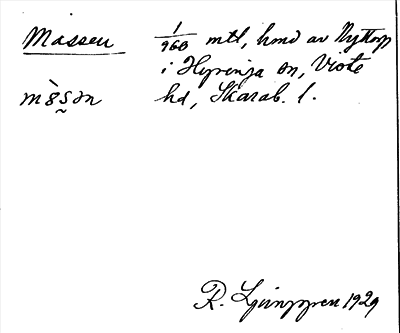 Massen 1/960 mtl, hmd av Nyttorp
i Hyringa sn, Viste
mös̰ən hd, Skarab. l.
R. Ljunggren 1929